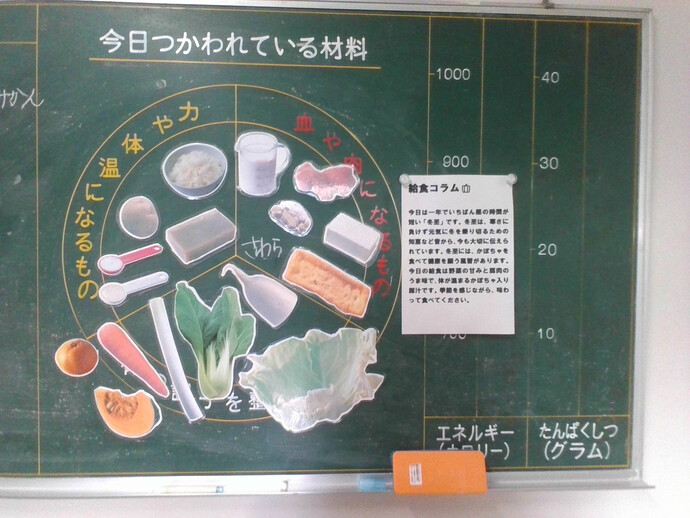 今日つかわれている材料
力や体温になるもの
血や肉になるもの
さわら
子を整
給食コラム
今日は一年でいちばん昼の時間が
短い「冬至」です。冬至は、寒さに
負けず元気に冬を乗り切るための
知恵など昔から、今も大切に伝えら
れています。冬至には、かぼちゃを
食べて健康を願う風習があります。
今日の給食は野菜の甘みと豚肉の
うま味で、体が温まるかぼちゃ入り
豚汁です。季節を感じながら、味わ
って食べてください。
1000
900
40
30
20
10
エネルギー
たんぱくしつ
(グラム)